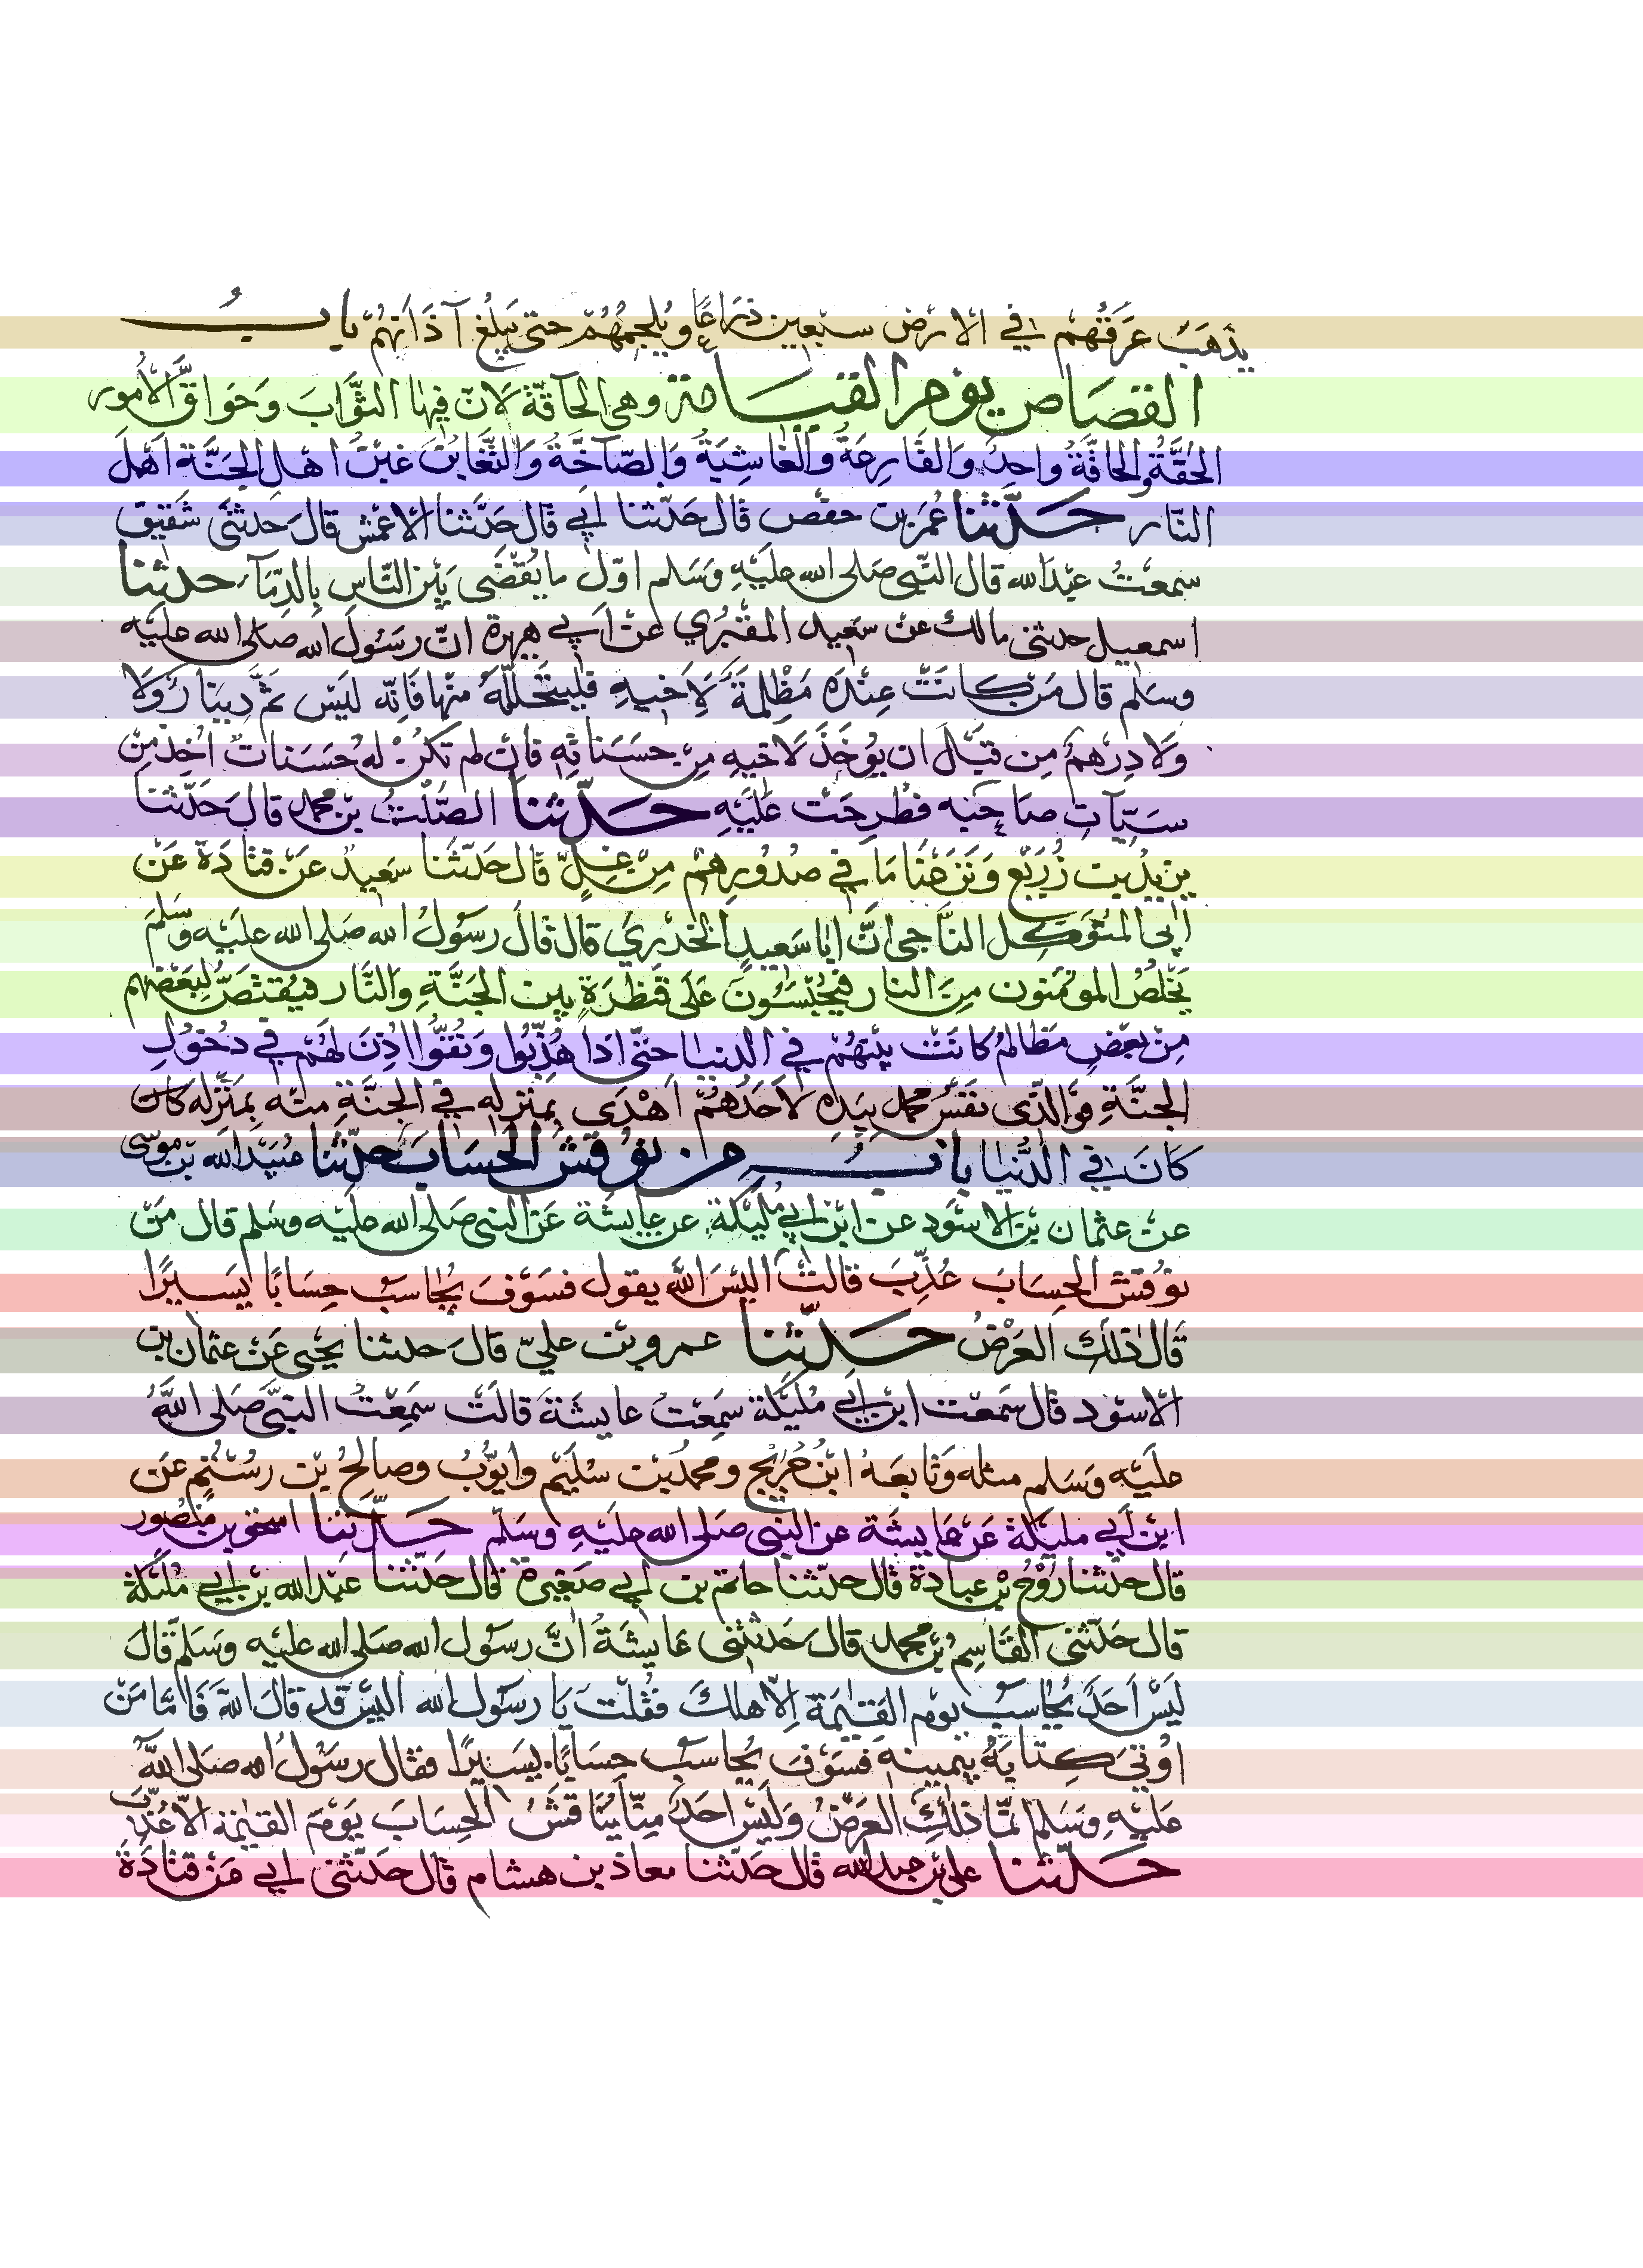 يذهب عَرَقُهم في الارض سبعين ذراعًا ويُلجمُهُم حتى يَبلُغ آذَانهُم بابُ
القصاص يوم القيامة وهي الحآقّة لانّ فيها الثَّوابَ وَحَواقَّ الأمور
الحَقَّةُ والحاقّةُ واحِدٌ وَالقَارِعَةُ وَالغَاشِيَةُ وَالصّآخَّةُ وَالتَّغَابُن غَبْنُ اهل الجَنَّة اَهْلَ
النّار حَدّثنا عُمَر بن حفص قال حَدّثنا ابي قال حَدّثنا الاعمش قالَ حدثنى شَقيق
سمعتُ عبْدَ الله قال النّبى صَلى الله عليْهِ وَسَلم اوّل ما يُقْضَى بَيْن النّاسِ بِالدِّمَآءِ حدثنا
اسمعيل حدثنى مالك عن سَعيد المقبُري عن اَبي هريرة انّ رسَوُل الله صَلى الله عليْه
وسَلم قال مَن كانَتْ عِنْدَه مَظْلِمَة لاَخيهِ فليتحَلَلْهُ منها فَانّه ليَسْ ثَمَّ دِينَارٌ وَلاَ
وَلا دِرْهمٌ مِن قبْل ان يُؤخَذَ لاخيهِ مِن حسَنَاتِه فان لم تكُنْ له حَسَنات اُخِذَ مِن
سَيِّآتِ صَاحبه فطُرِحَت عَليْهِ حَدّثنا الصَّلتُ بن محمد قالَ حَدّثنا
يزيدُ بن زُرَيْع وَنزَعْنَا مَا في صُدُورِهم مِن غِلٍّ قال حَدّثنا سَعيدٌ عَن قتادَة عَن
ابى المتوَكل النَّاجى انّ ابا سَعيدٍ الخدْريَ قال قالَ رَسَوُلُ الله صَلى الله عليْه وَسَلمَ
يَخْلُصُ المؤمنون مِنَ النار فيُحْبَسُونَ عَلى قَنطرَةٍ بين الجَنَّةِ وَالنَّار فيُقتَصُّ لِبَعْضِهم
مِن بعْضٍ مَظالمُ كانَتْ بيْنَهُم في الدنيا حتّى اذا هُذِّبُوا وَنُقُّوا اُذِنَ لهُم في دخُوْلِ
الجنَّةِ فوَالذّى نفْسُ محمد بيَدِه لاَحَدُهُمْ اَهْدَى بِمَنْزِله في الجَنَّةِ منْه بِمَنْزِله كانَ
كانَ في الدُّنيا باب من نُوقشَ الحسَابَ حدّثنا عُبَيْدُ الله بن موسى
عن عثمان بن الاسوَد عن ابن ابي مُليكة عن عايشة عَن النبى صَلى الله عليْه وسَلم قال مَن
نُوقشَ الحِسابَ عُذِّبَ قالتْ اليْسَ الله يقول فسَوْفَ يُحَاسَبُ حِسَابًا يَسَيرًا
قَال ذلكِ العَرْضُ حَدّثنا عمرو بن عليّ قالَ حدثنا يحيى عَن عثمان بن
الاسوَد قال سَمعت ابن ابي مُليَكة سَمِعْتُ عايشَةَ قالَتْ سَمِعْتُ النبيَّ صَلى اللهُ
عليْه وَسَلم مثله وَتَابعَهُ ابنُ جُرَيْجٍ ومحمدُ بن سُليْم وايّوُبُ وصالحُ بن رسُتُم عن
ابن اَبي مليَكة عَن عايشَة عن النبى صَلى الله عليْهِ وسَلم حَدّثنا اسحق بن مَنْصُور
قال حدّثنا رَوْحُ بْن عبادة قال حدّثنا حاتم بن ابي صَغيرة قال حَدّثنا عَبْد الله بن ابي مُليْكة
قال حَدّثنى القَاسِمُ بْن محمد قالَ حَدثتْنى عَايشَةُ انّ رسَوُل الله صَلى الله عليْه وَسَلم قالَ
ليَسْ اَحَدٌ يُحاسَبُ يوم القيٰمَة اِلاّ هلكَ فقُلتُ يَا رسَوُل الله اليْس قد قالَ اللهُ فَامّا مَن
اوُتىَ كِتابَهُ بيمينه فَسَوْفَ يُحَاسَبُ حِسَابًا يسَيرًا فقال رسَوُلُ الله صَلى اللهُ
عَليْهِ وَسَلم انّما ذلكِ العَرْضُ وَليْسَ احَدٌ مِنّا يُنَاقَشُ الحِسابَ يَوْمَ القيٰمة الاّ عُذّبَ
حَدّثنا علي بن عبد الله قال حَدّثنا معاذ بن هشام قال حَدّثنى ابي عَن قتادَةَ